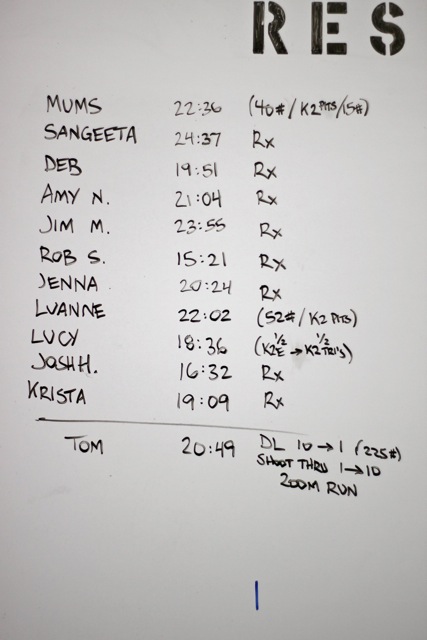 RES
MUMS 22:36 (40#/K2PITS/15#)
SANGEETA 24:37 Rx
DEB 19:51 Rx
AMY N. 21:04 Rx
JIM M. 23:55 Rx
ROB S. 15:21 Rx
JENNA 20:24 Rx
LUANNE 22:02 (52#/K2 PITS)
LUCY 18:36 (K2E 1/2 → K2TRI'S 1/2)
JOSH H. 16:32 Rx
KRISTA 19:09 Rx
TOM 20:49 DL 10→1 (225#)
SHOOT THRU 1→10
200M RUN